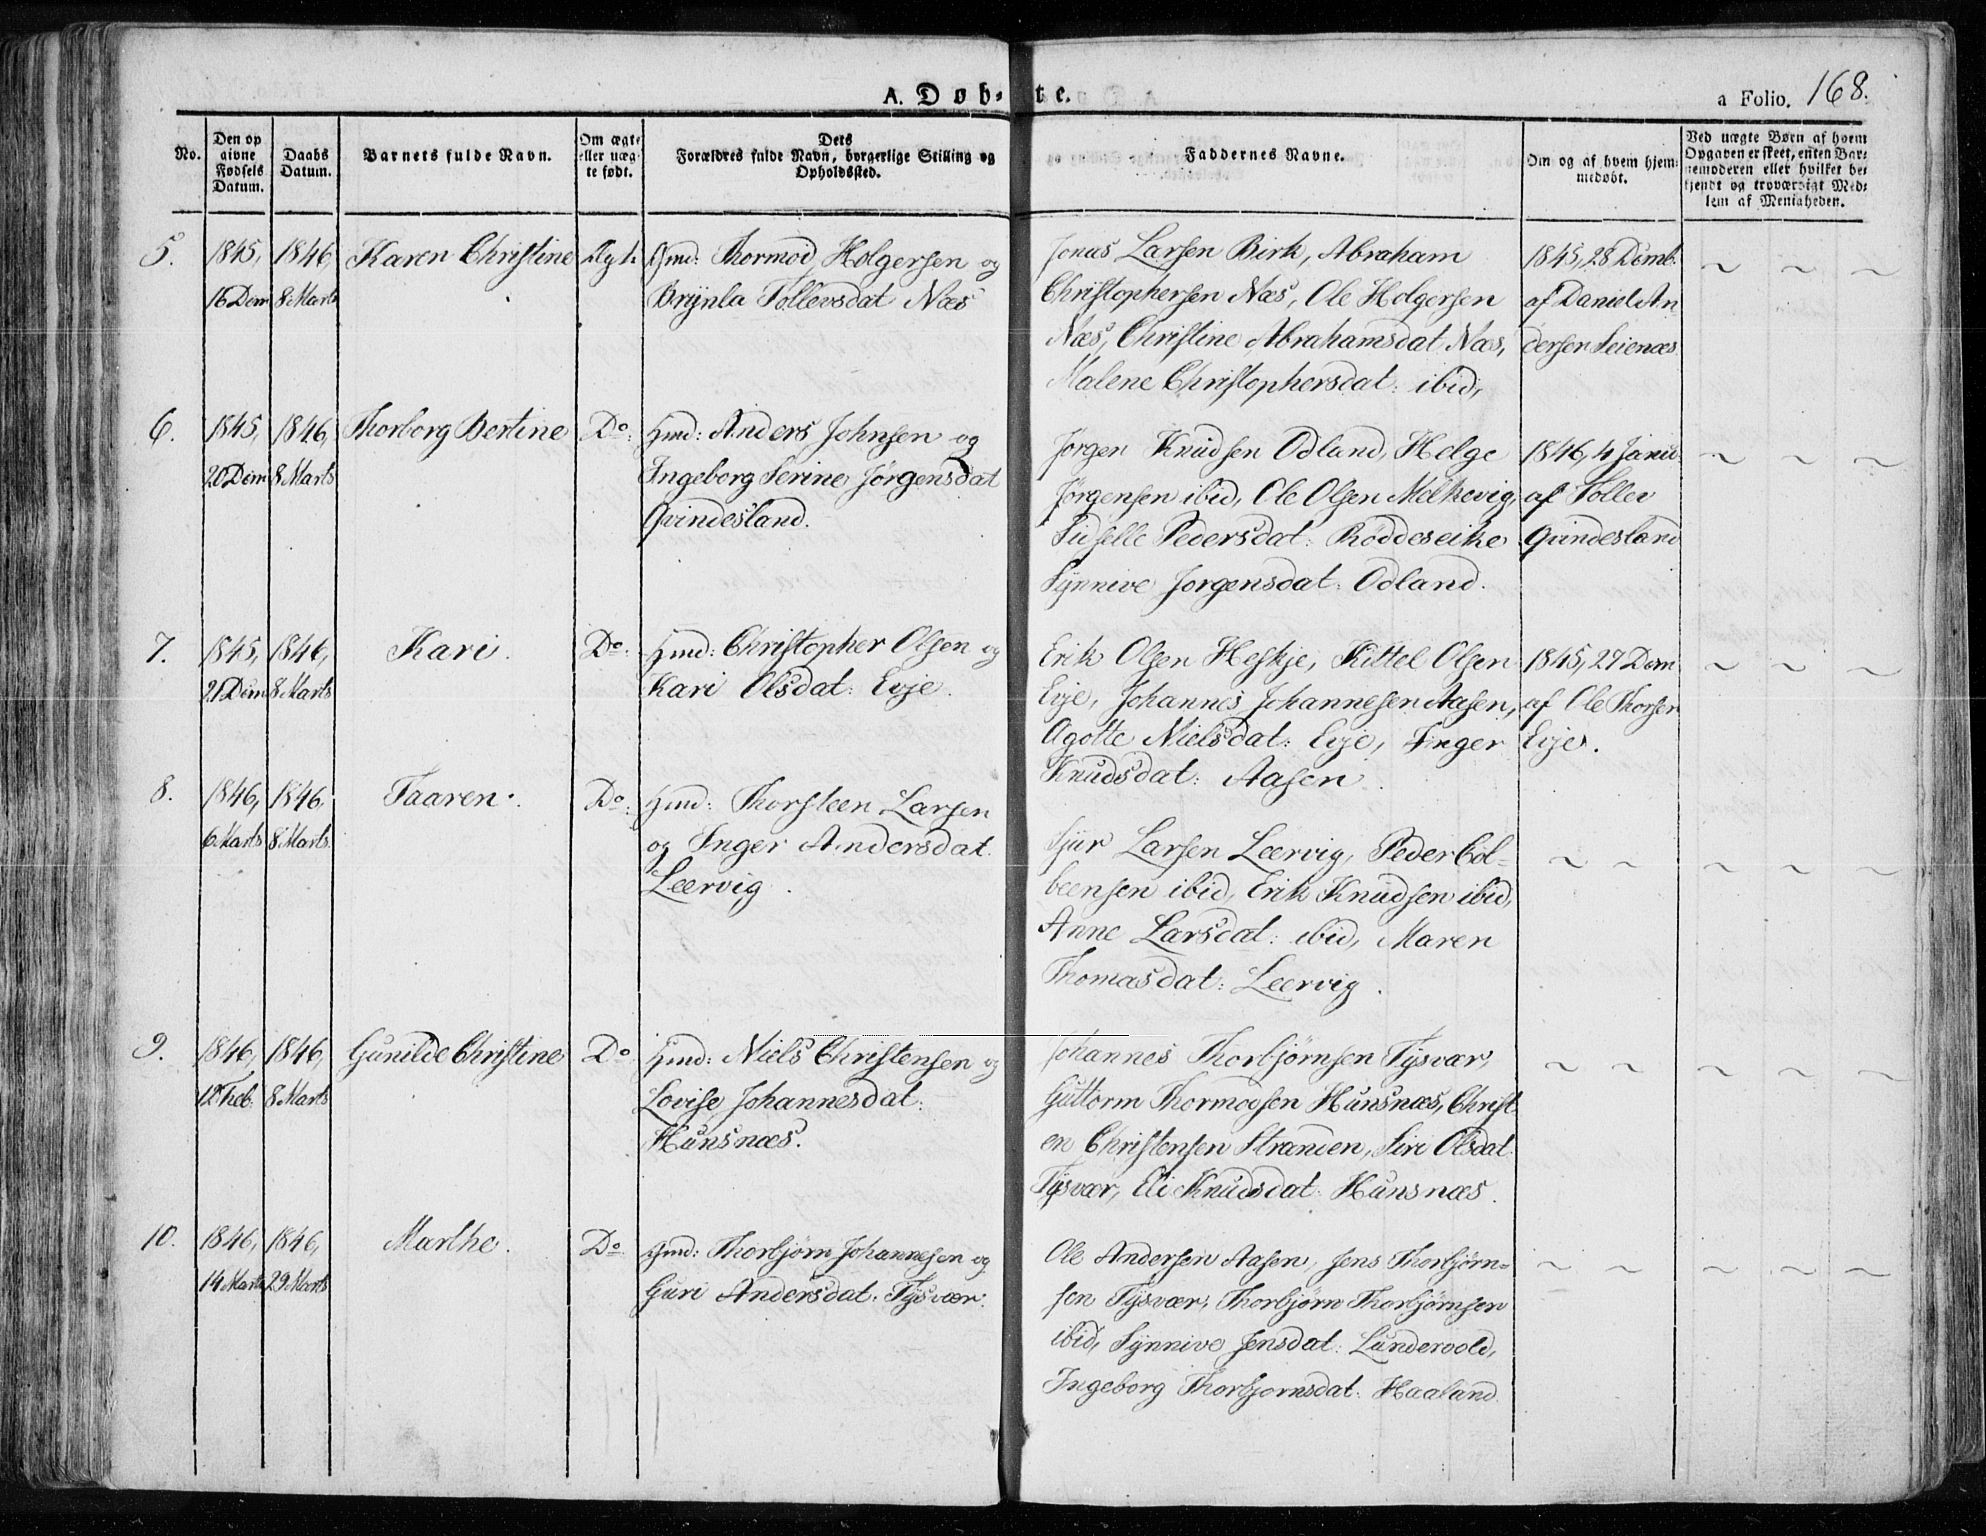 A. Døb-te.
a Folio. 168.
No.
Den op
givne
Fødsels
Datum.
Daabs
Datum.
Barnets fulde Navn.
Om ægte
eller uæg-
te født.
Dets
Forældres fulde Navn, borgerlige Stilling og
Opholdssted.
Faddernes Navne.
Om og af hvem hjem-
medøbt.
Ved uægte Børn af hvem
Opgaven er skeet, enten Bar-
nemoderen eller hvilket be-
kjendt og troværdigt Med-
lem af Menigheden.
5.
1845,
16 Dem
1846,
8 Marts
Karen Christine
Ægt.
Hmd: Thormod Holgersen og
Brynla Tollevsdat Næs
Jonas Larsen Birk, Abraham
Christophersen Næs, Ole Holgersen
Næs, Christine Abrahamsdat Næs,
Malene Christophersdat: ibid,
1845, 28 Demb.
af Daniel An
dersen Leienæs
6.
1845,
20 Dem
1846,
8 Marts
Thorborg Bertine
Do.
Hmd: Anders Johnsen og
Ingeborg Serine Jørgensdat
Qvindesland.
Jørgen Knudsen Odland, Helge
Jørgensen ibid, Ole Olsen Melkevig,
Sidselle Pedersdat: Røddeseike
Synnive Jorgensdat: Odland.
1846, 4 Janu
af Tollev
Qvindesland
7.
1845,
21 Dem
1846,
8 Marts
Kari.
Do.
Hmd: Christopher Olsen og
Kari Olsdat: Evje.
Erik Olsen Heskje, Kittel Olsen
Evje, Johannes Johannesen Aasen,
Agotte Nielsdat: Evje, Inger
Knudsdat: Aasen.
1845, 27 Dem
af Ole Thorsen
Evje.
8.
1846,
6 Marts
1846.
8 Marts.
Taaren.
Do.
Hmd: Thorsteen Larsen
og Inger Andersdat.
Leervig.
Sjur Larsen Leervig, Peder Col-
beensen ibid, Erik Knudsen ibid,
Anne Larsdat: ibid, Maren
Thomasdat: Leervig.
9.
1846,
12 Feb.
1846,
8 Marts
Gunilde Christine
Do
Hmd: Niels Christensen og
Lovise Johannesdat:
Hunsnæs.
Johannes Thorbjørnsen Tysvær,
Guttorm Thormodsen Hunsnæs, Christ
en Christensen Stranden, Siri Olsdat
Tysvær, Eli Knudsdat: Hunsnæs.
10.
1846,
14 Marts
1846,
29 Marts
Marthe.
Do
Hmd: Thorbjørn Johannesen og
Guri Andersdat. Tysvær.
Ole Andersen Aasen, Jens Thorbjørn-
sen Tysvær, Thorbjørn Thorbjørnsen
ibid, Synnive Jensdat: Lundevold,
Ingeborg Thorbjornsdat: Haaland